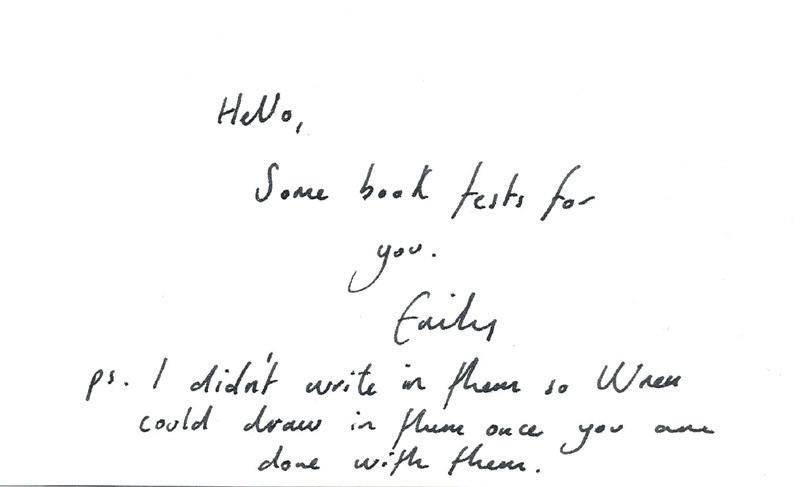 Hello,
Some book tests for
you.
Emily
ps. I didn't write in them so Wren
could draw in them once you are
done with them.